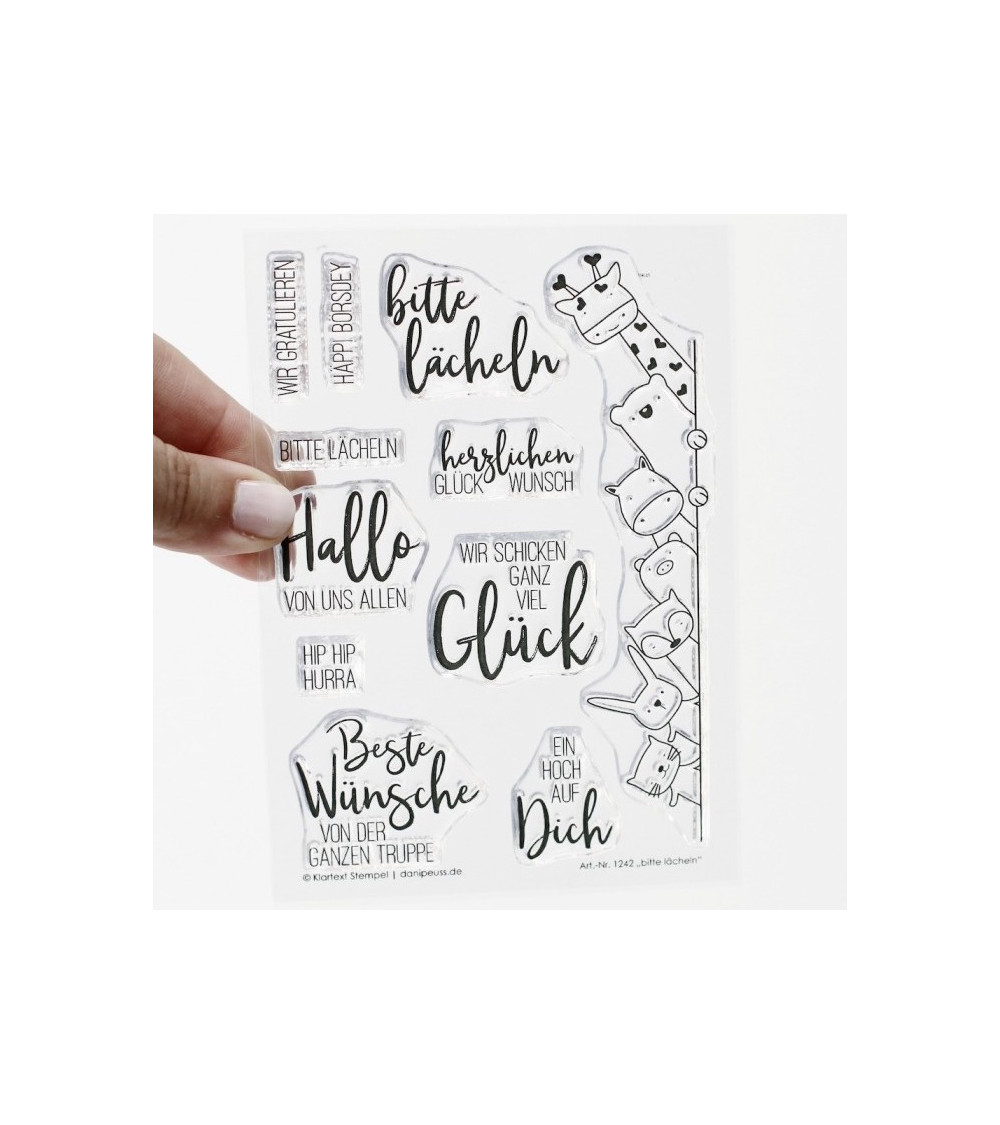 WIR GRATULIEREN
HÄPPI BÖRSDEY
bitte
lächeln
BITTE LÄCHELN
herzlichen
GLÜCK WUNSCH
Hallo
VON UNS ALLEN
WIR SCHICKEN
GANZ
VIEL
Glück
HIP HIP
HURRA
Beste
Wünsche
VON DER
GANZEN TRUPPE
EIN
HOCH
AUF
Dich
© Klartext Stempel | danipeuss.de
Art.-Nr. 1242 „bitte lächeln“